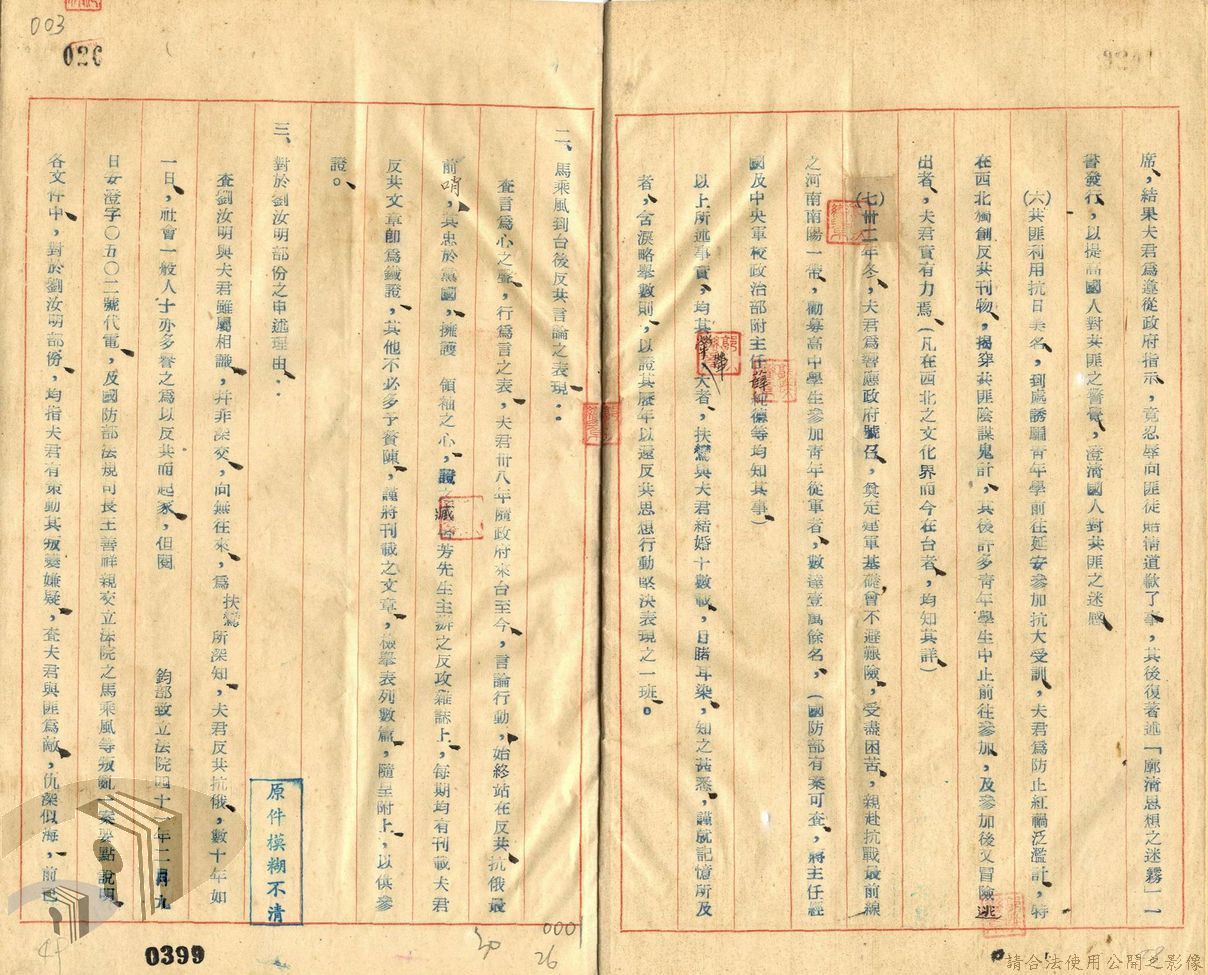 席，結果夫君為遵從政府指示，竟忍辱向匪徒賠情道歉了事，其後復著述「廓清思想之迷霧」一
書發行，以提高國人對共匪之警覺，澄清國人對共匪之迷惑
(六)共匪利用抗日美名，到處誘騙青年學前往延安參加抗大受訓，夫君為防止紅禍泛濫計，特
在西北獨創反共刊物，揭穿共匪陰謀鬼計，其後許多青年學生中止前往參加，及參加後又冒險逃
出者，夫君實有力焉，(凡在西北之文化界而今在台者，均知其詳)
(七)卅二年冬，夫君為響應政府號召，奠定建軍基礎曾不避艱險，受盡困苦，親赴抗戰最前線
之河南南陽一帶，勸募高中學生參加青年從軍者，數達壹萬餘名，(國防部有案可查，將主任經
國及中央軍校政治部附主任薛純德等均知其事)
以上所述事實，均其犖犖大者，扶鸞與夫君結婚十數載，目睹耳染，知之甚悉，謹就記憶所及
者，含淚略舉數則，以證其歷年以還反共思想行動堅決表現之一班。
二、馬乘風到台後反共言論之表現：
查言為心之聲，行為言之表，夫君卅八年隨政府來台至今，言論行動，始終站在反共抗俄最
前哨，其忠於黨國，擁護　領袖之心，證之臧啓芳先生主辦之反攻雜誌上，每期均有刊載夫君
反共文章即為鐵證，其他不必多予資陳，謹將刊載之文章，檢舉表列數篇，隨呈附上，以供參
證。
三、對於劉汝明部份之申述理由：
查劉汝明與夫君雖屬相識，幷非深交，向無往來，為扶鸞所深知，夫君反共抗俄，數十年如
一日，社會一般人士亦多譽之為以反共而起家，但閱　鈞部致立法院四十一年二月九
日安澄字〇五〇二號代電，及國防部法規司長王善祥親交立法院之馬乘風等叛亂一案要點說明
各文件中，對於劉汝明部份，均指夫君有策動其叛變嫌疑，查夫君與匪為敵，仇深似海，前已
原件模糊不清
003
026
0399
000
26
請合法使用公開之影像